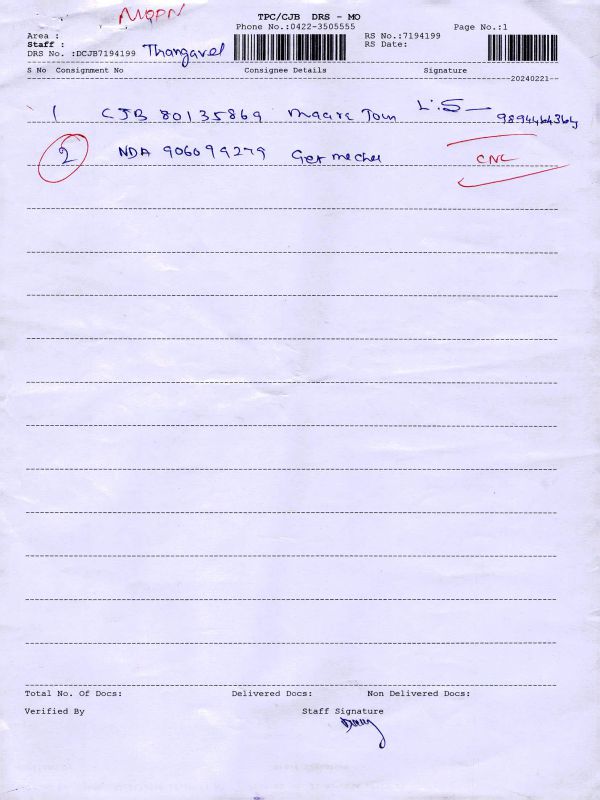 MOPN
TPC/CJB DRS - MO
Phone No.:0422-3505555
Page No.:1
Area :
RS No.:7194199
Staff :
RS Date:
DRS No. :DCJB7194199 Thangavel
S No Consignment No Consignee Details Signature
20240221
1 CJB 80135869 L.S 9894464364
2 NDA 906099279 CNC
Total No. Of Docs: Delivered Docs: Non Delivered Docs:
Verified By Staff Signature